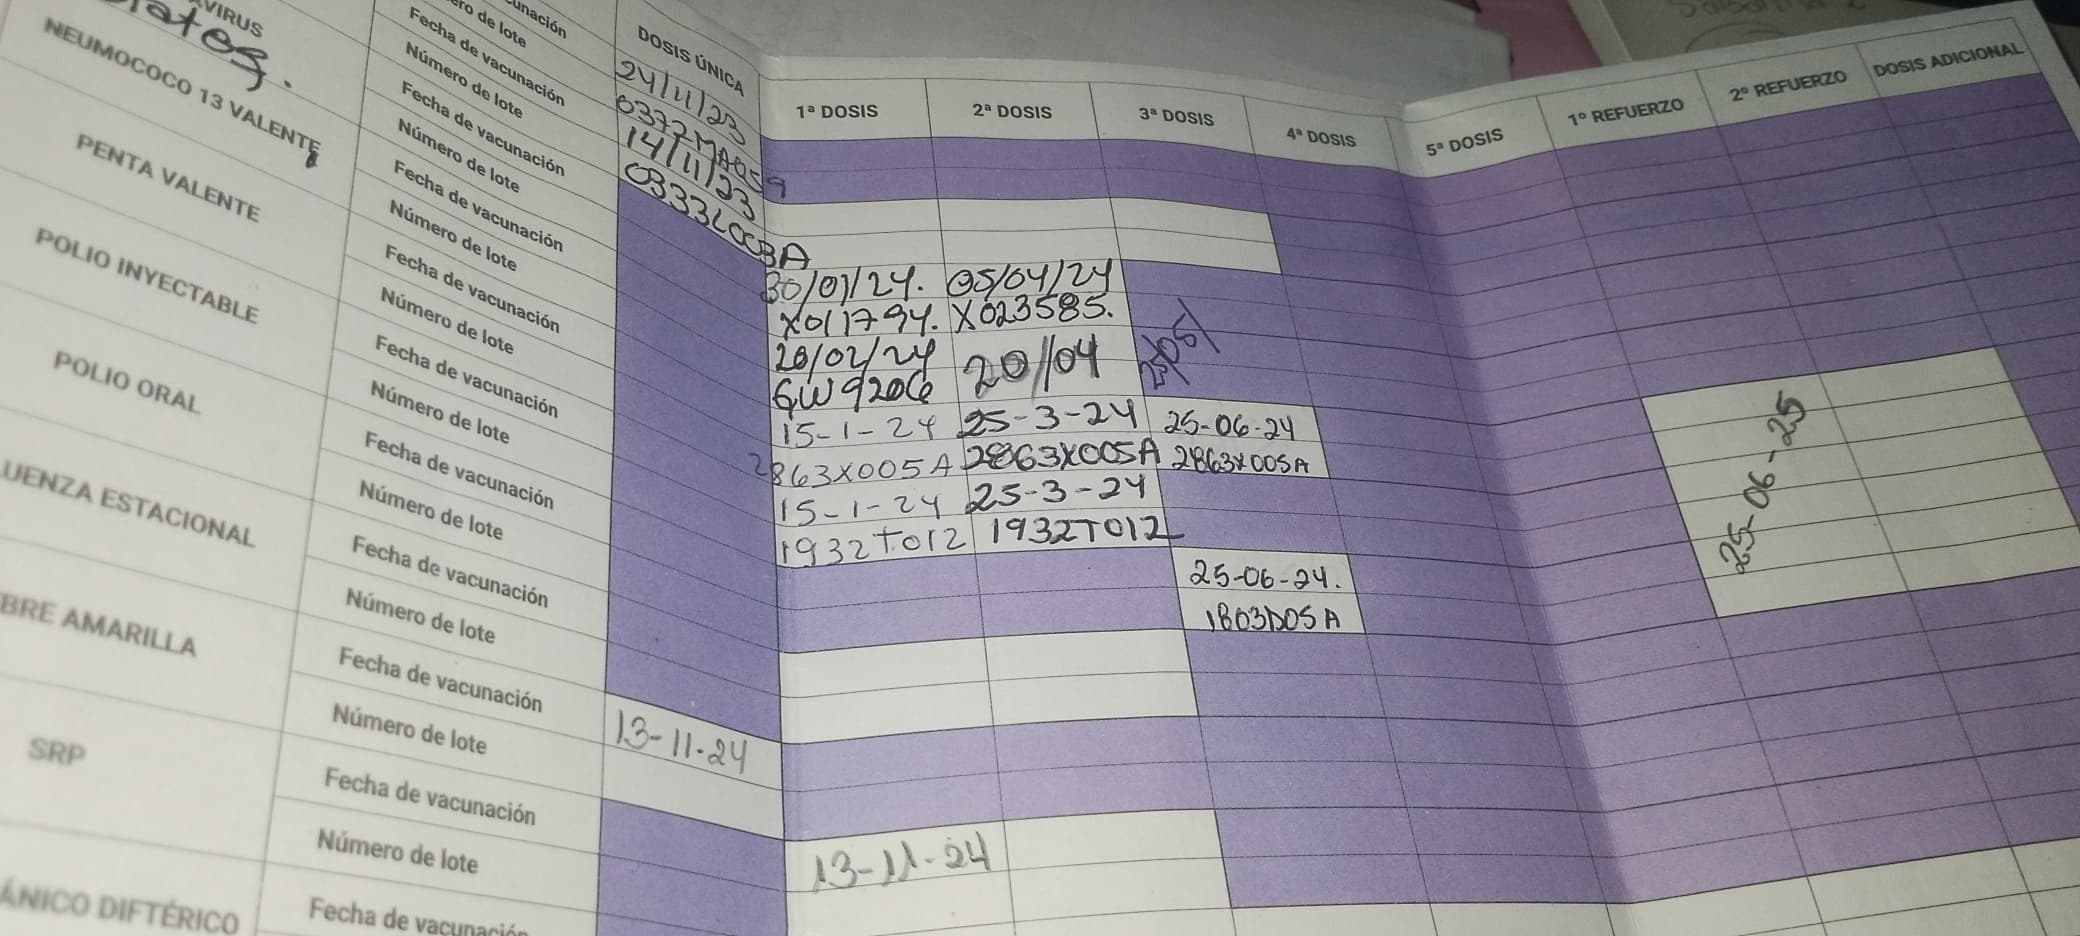 DOSIS ÚNICA
1ª DOSIS
2ª DOSIS
3ª DOSIS
4ª DOSIS
5ª DOSIS
1º REFUERZO
2º REFUERZO
DOSIS ADICIONAL
VIRUS
Número de lote
Fecha de vacunación
24/11/23
NEUMOCOCO 13 VALENTE
Número de lote
Fecha de vacunación
14/11/23
PENTA VALENTE
Número de lote
Fecha de vacunación
30/01/24. 05/04/24
X011794. X023585.
POLIO INYECTABLE
Número de lote
Fecha de vacunación
20/04
POLIO ORAL
Número de lote
Fecha de vacunación
15-1-24 25-3-24 25-06-24
2863X005A 2863X005A 2863X005A
25-06-25
UENZA ESTACIONAL
Número de lote
Fecha de vacunación
15-1-24 25-3-24
1932T012 1932T012
BRE AMARILLA
Número de lote
Fecha de vacunación
25-06-24.
Número de lote
SRP
Fecha de vacunación
13-11-24
Número de lote
ÁNICO DIFTÉRICO
Fecha de vacunación
13-11-24